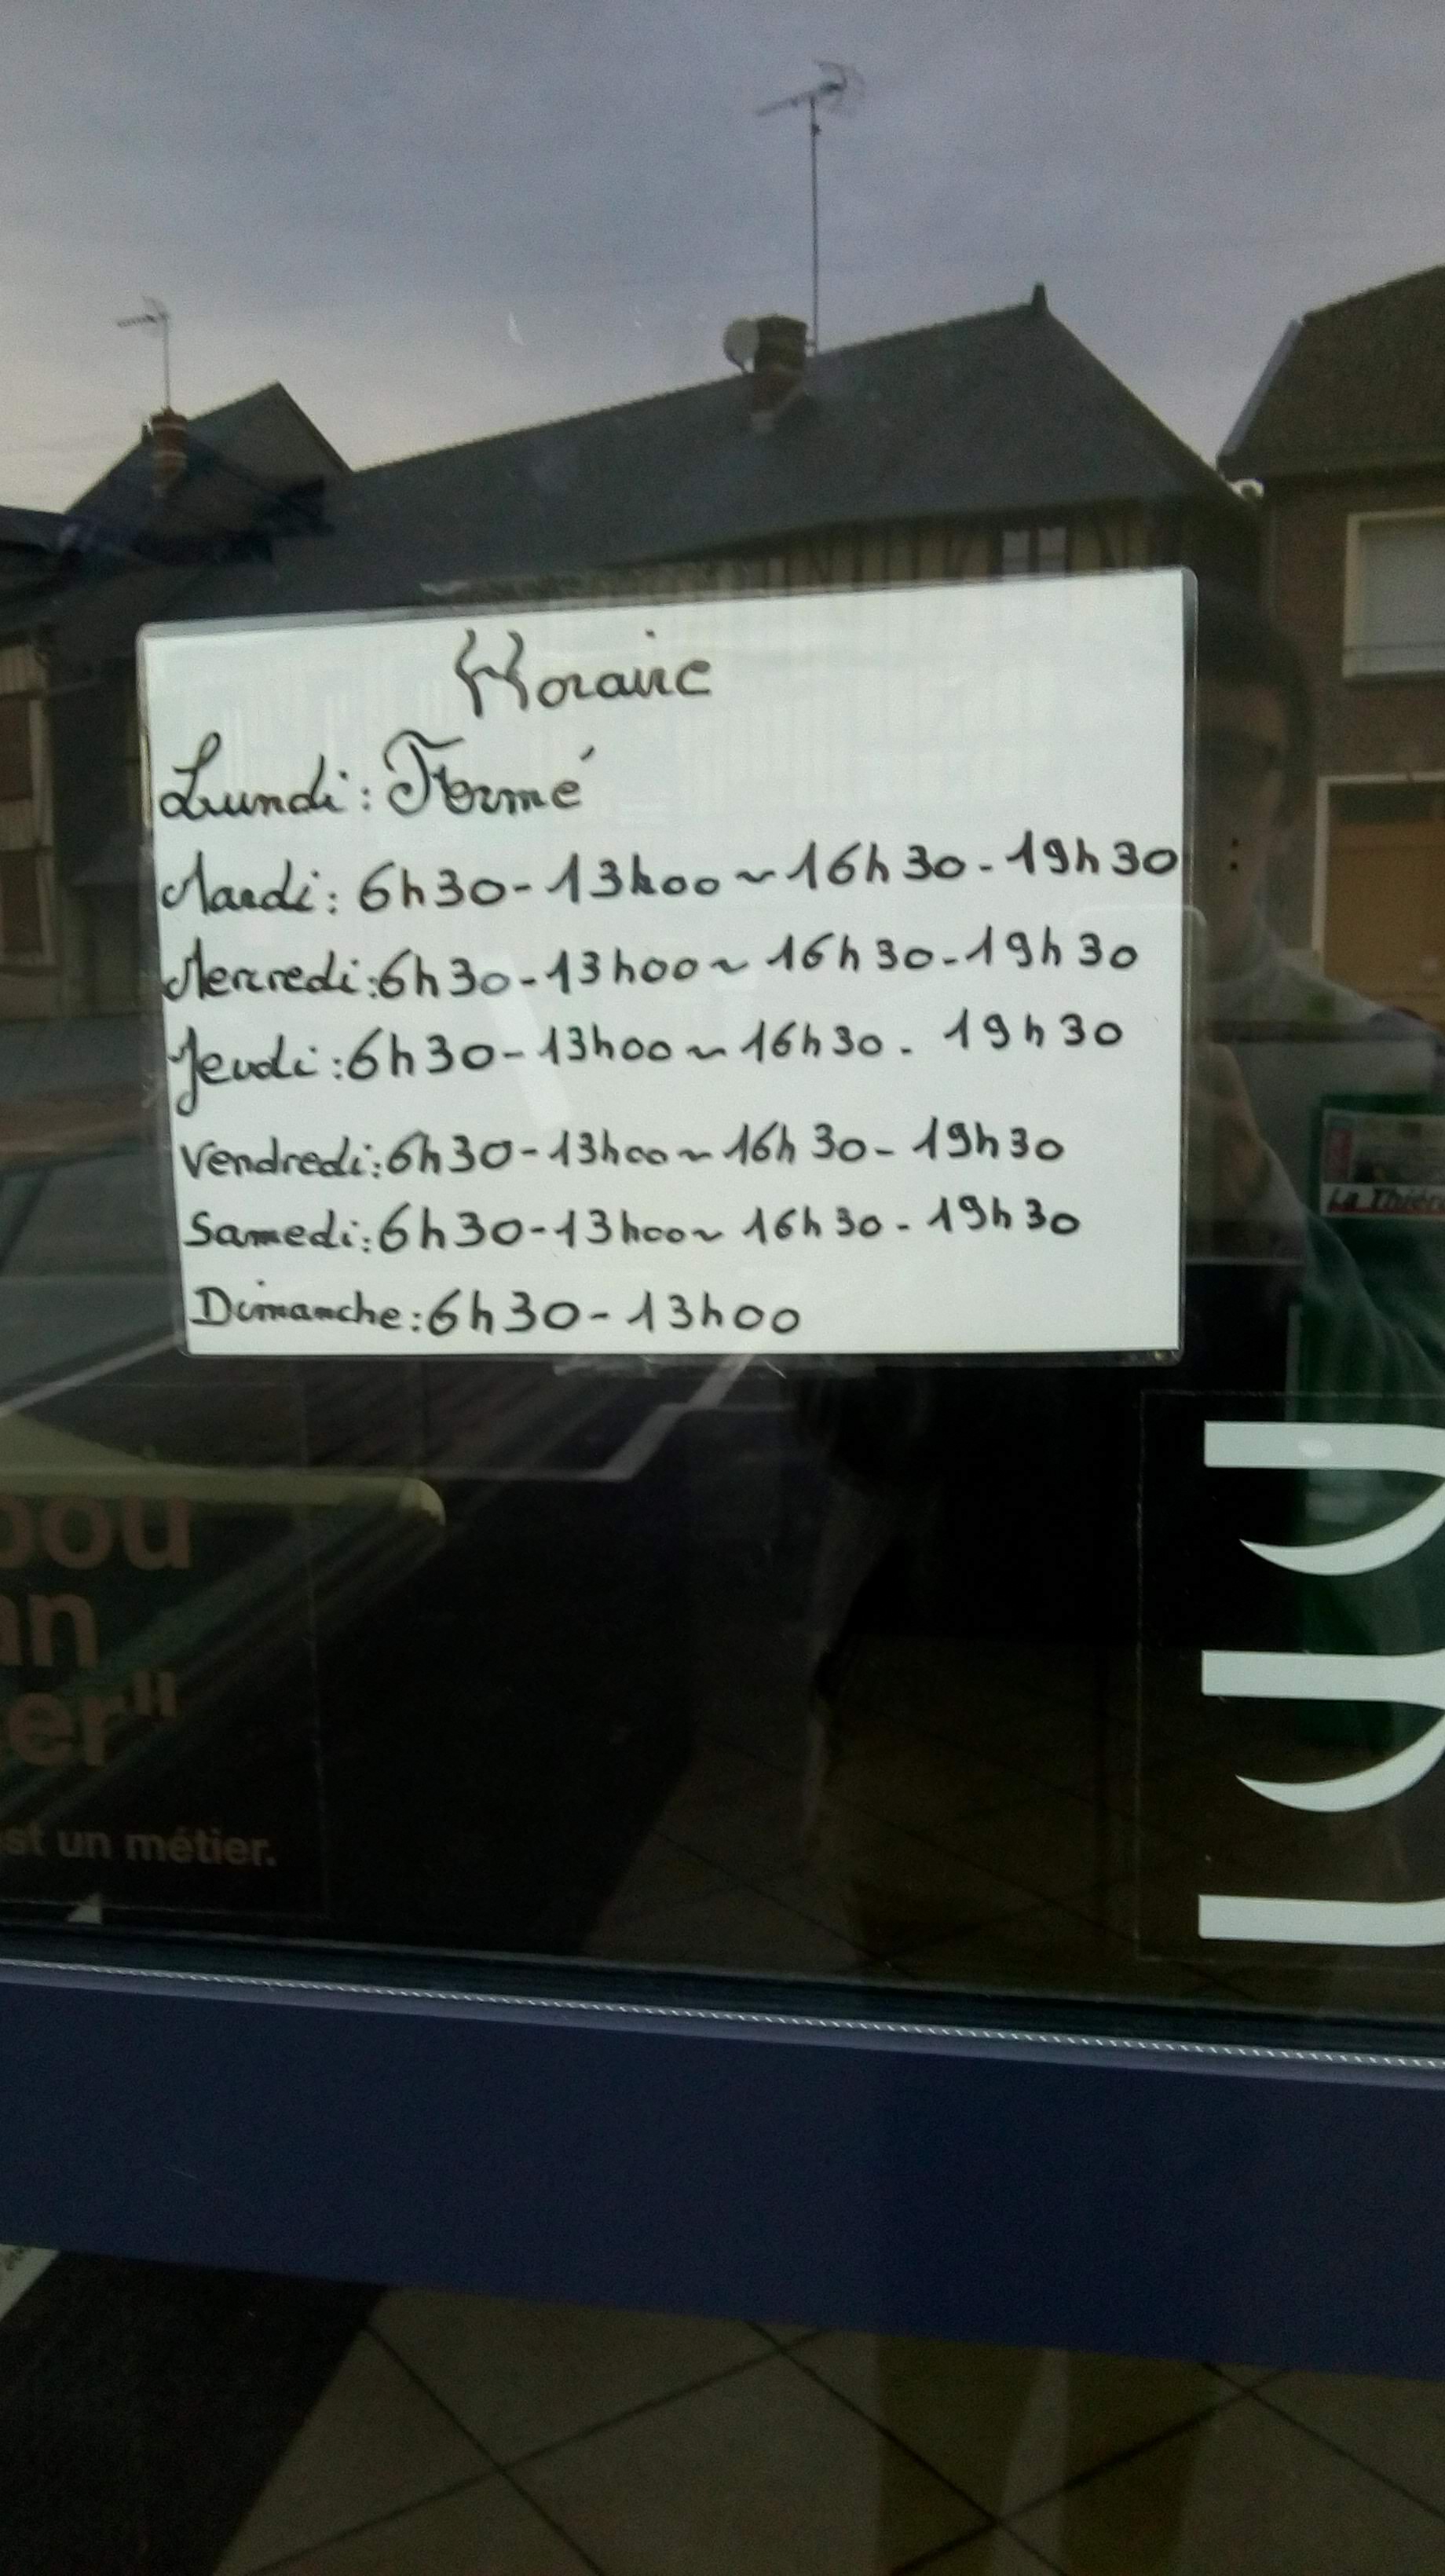 Horaire
Lundi: Fermé
Mardi: 6h30-13h00~16h30-19h30
Mercredi:6h30-13h00~16h30-19h30
Jeudi:6h30-13h00~16h30-19h30
Vendredi:6h30-13h00~16h30-19h30
Samedi:6h30-13h00~16h30-19h30
Dimanche:6h30-13h00
un métier.